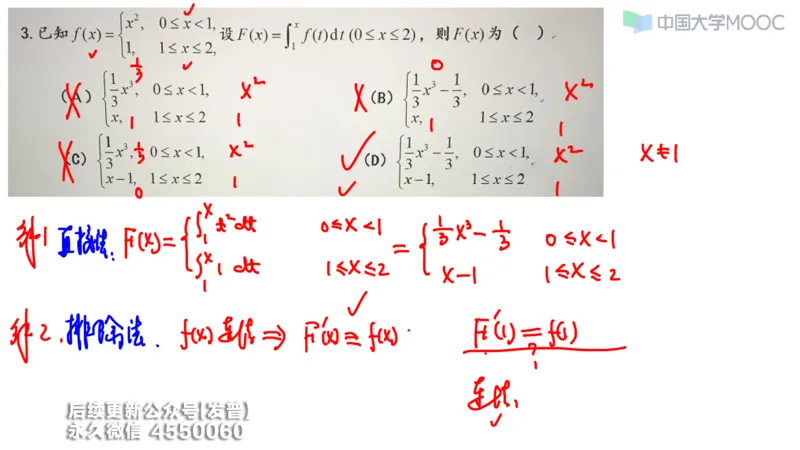 中国大学MOOC
3.已知 f(x)={x², 0≤x<1, 1, 1≤x≤2, 设F(x)=∫₁ˣ f(t)dt (0≤x≤2), 则F(x)为( ).
(A) {1/3 x³, 0≤x<1, x, 1≤x≤2
(B) {1/3 x³ − 1/3, 0≤x<1, x, 1≤x≤2
(C) {1/3 x³, 0≤x<1, x−1, 1≤x≤2
(D) {1/3 x³ − 1/3, 0≤x<1, x−1, 1≤x≤2
1/3 x² 1 1
0 x² 1 1
1/3 x² 0 1
x² 1
x≠1
解1 直接法: F(x)={∫₁ˣ t²dt 0≤x<1 ∫₁ˣ 1 dt 1≤x≤2 = {1/3 x³ − 1/3 0≤x<1 x−1 1≤x≤2
解2. 排除法. f(x)连续 ⇒ F'(x)=f(x). F'(1)=f(1)
?
连续,
后续更新公众号(发普)
永久微信 4550060